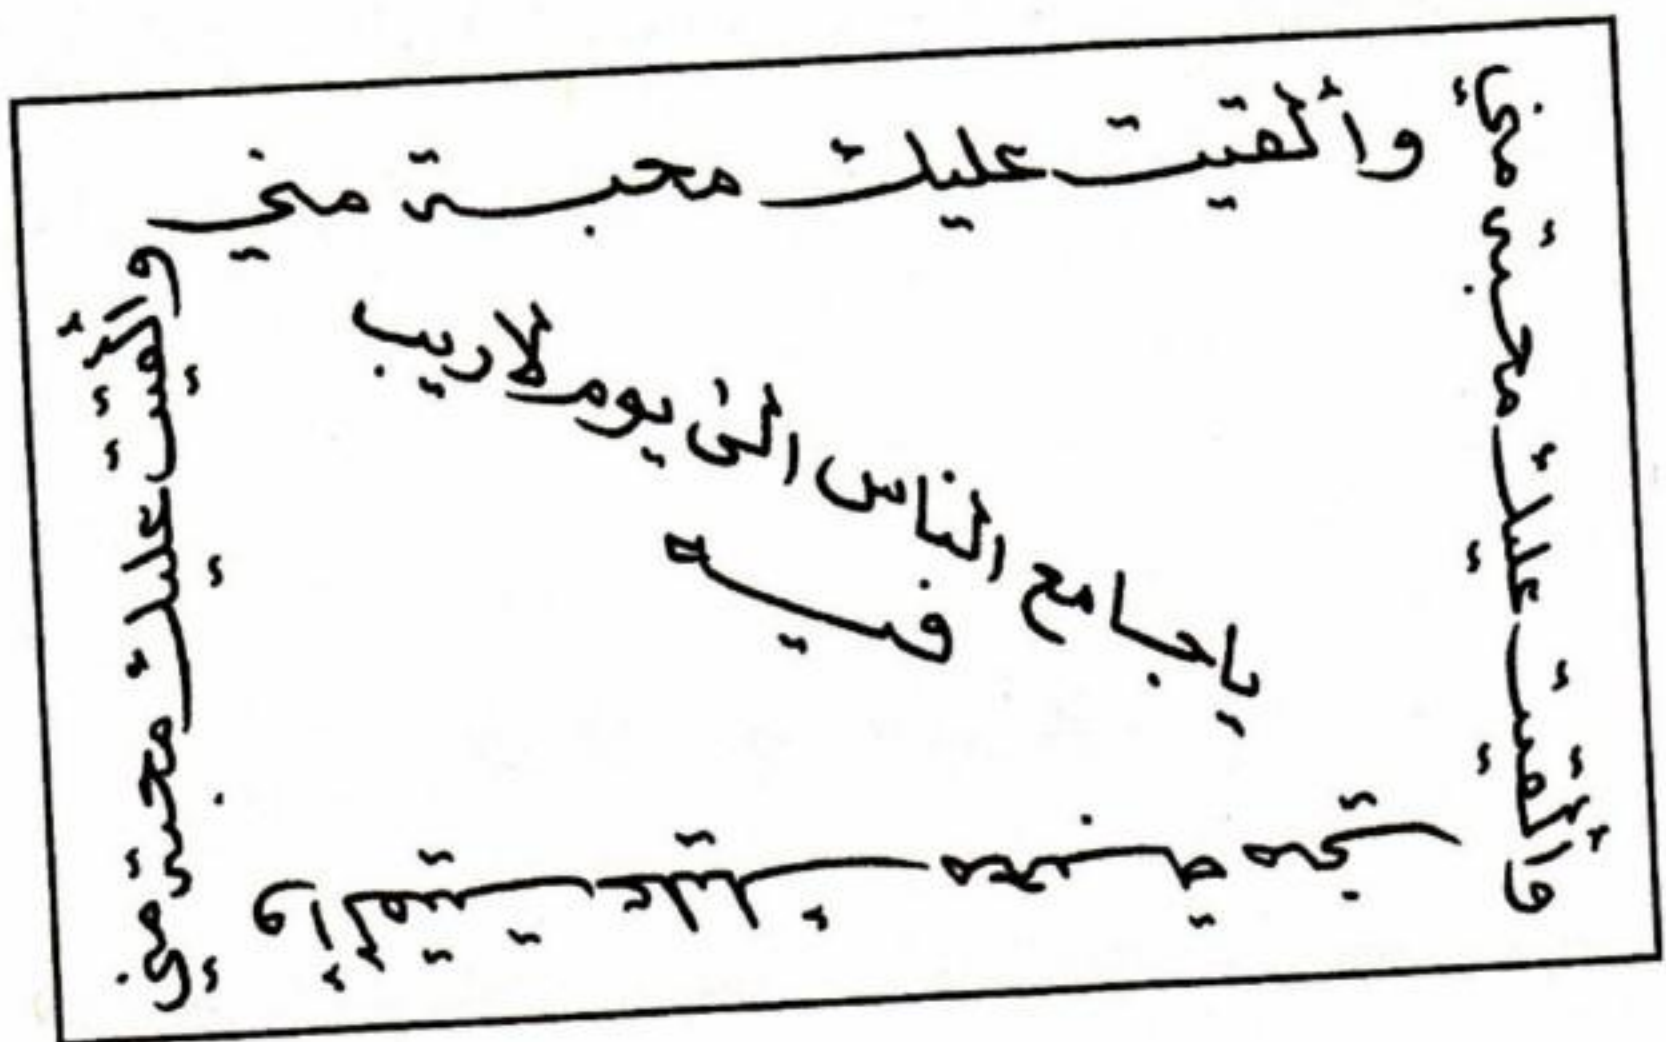 وألقيت عليك محبة مني
وألقيت عليك محبة مني
وألقيت عليك محبة مني
وألقيت عليك محبة مني
ياجامع الناس الىٰ يوم لاريب
فيه